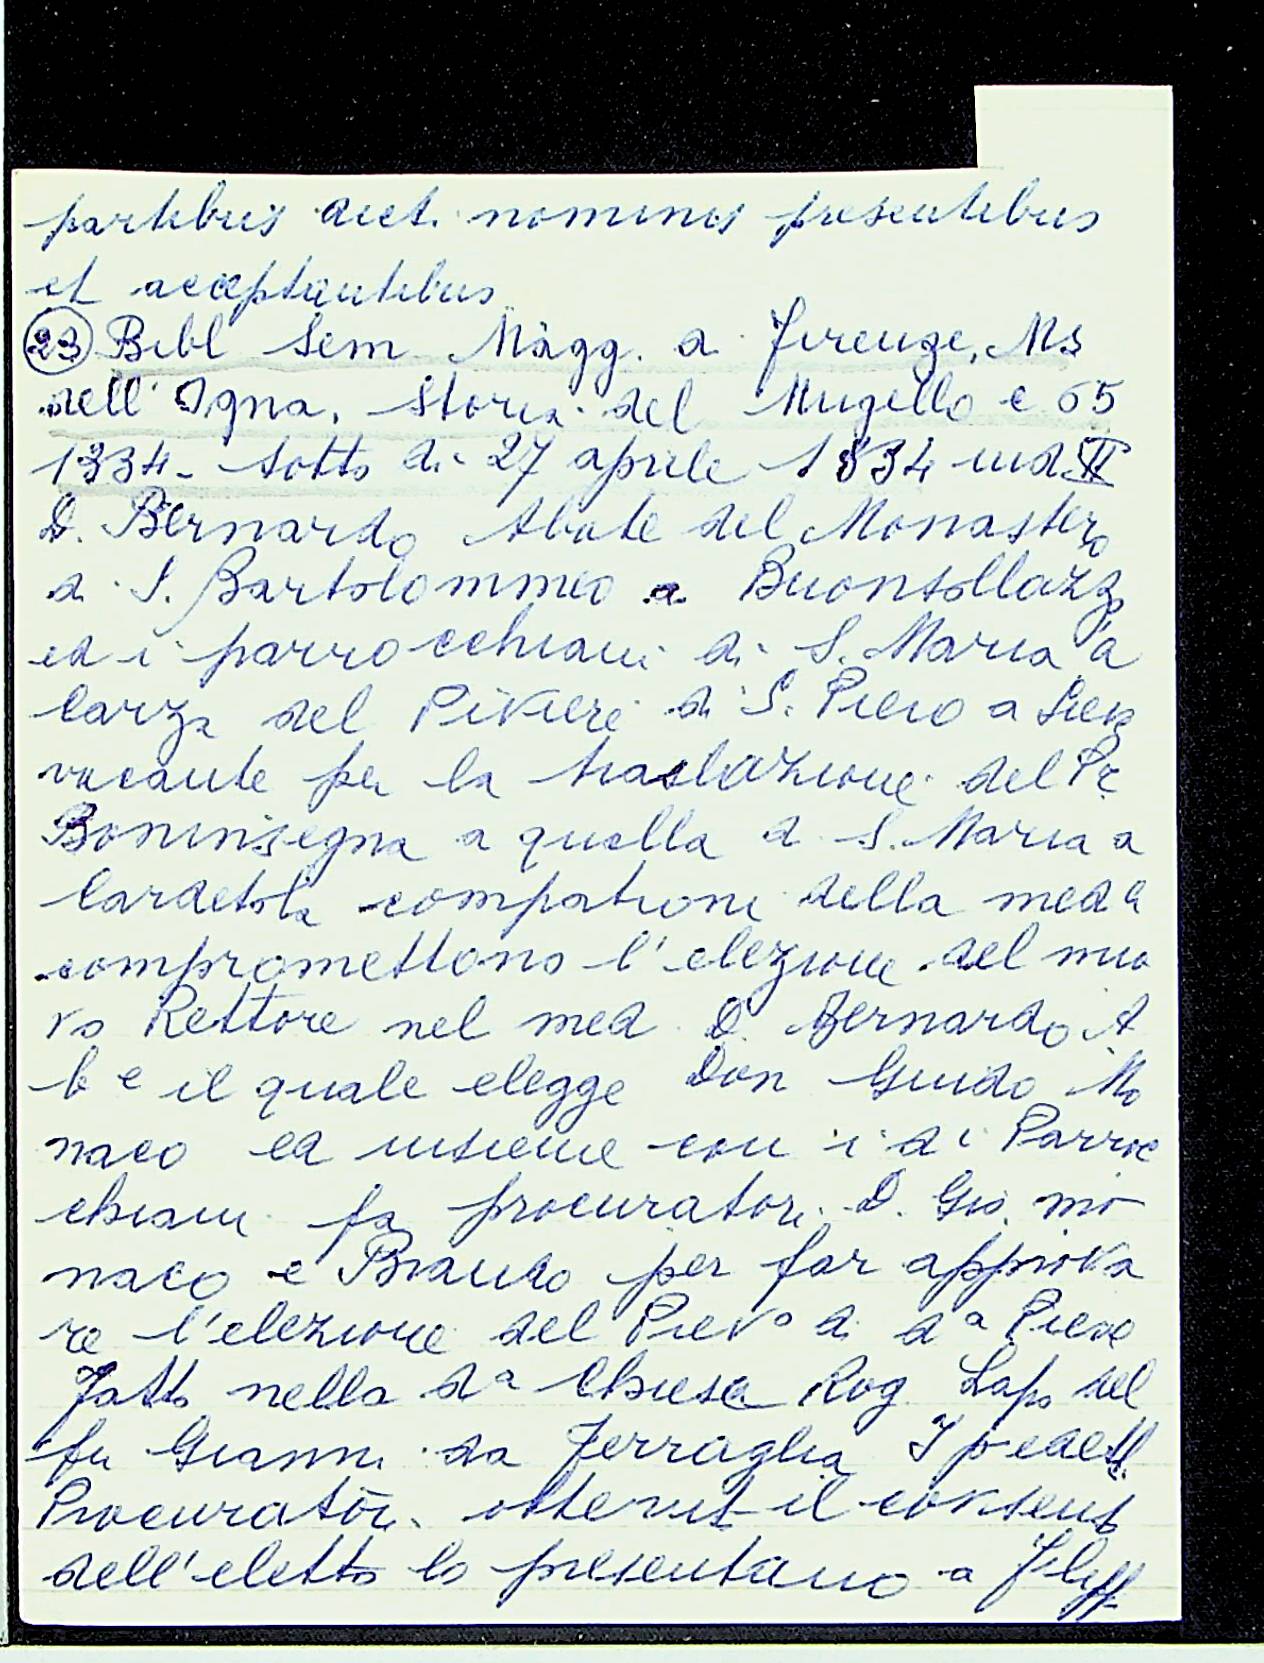 partibus dict. nominis presentibus
et acceptantibus
23 Bibl Sem Magg. a Firenze, Ms
dell'Igna, Storia del Mugello c 65
1334 - sotto di 27 aprile 1334 ind II
D. Bernardo Abate del Monastero
di S. Bartolommeo a Buonsollazzo
ed i parrocchiani di S. Maria a
Carza del Piviere di S. Piero a Sieve
vacante per la traslazione del Pe
Boninsegna a quella di S. Maria a
Cardetola compatroni della meda
compromettono l'elezione del nuo
vo Rettore nel med D. Bernardo A
b e il quale elegge Don Guido Mo
naco ed insieme con i di Parroc
chiani fa procuratori D. Gio. mo
naco e Brando per far approva
re l'elezione del Pievo di da Pieve
Fatto nella da Chiesa Rog Lapo del
fu Gianni da Ferraglia I
Procuratori. ottenuto il consenso
dell'eletto lo presentano a Filipp